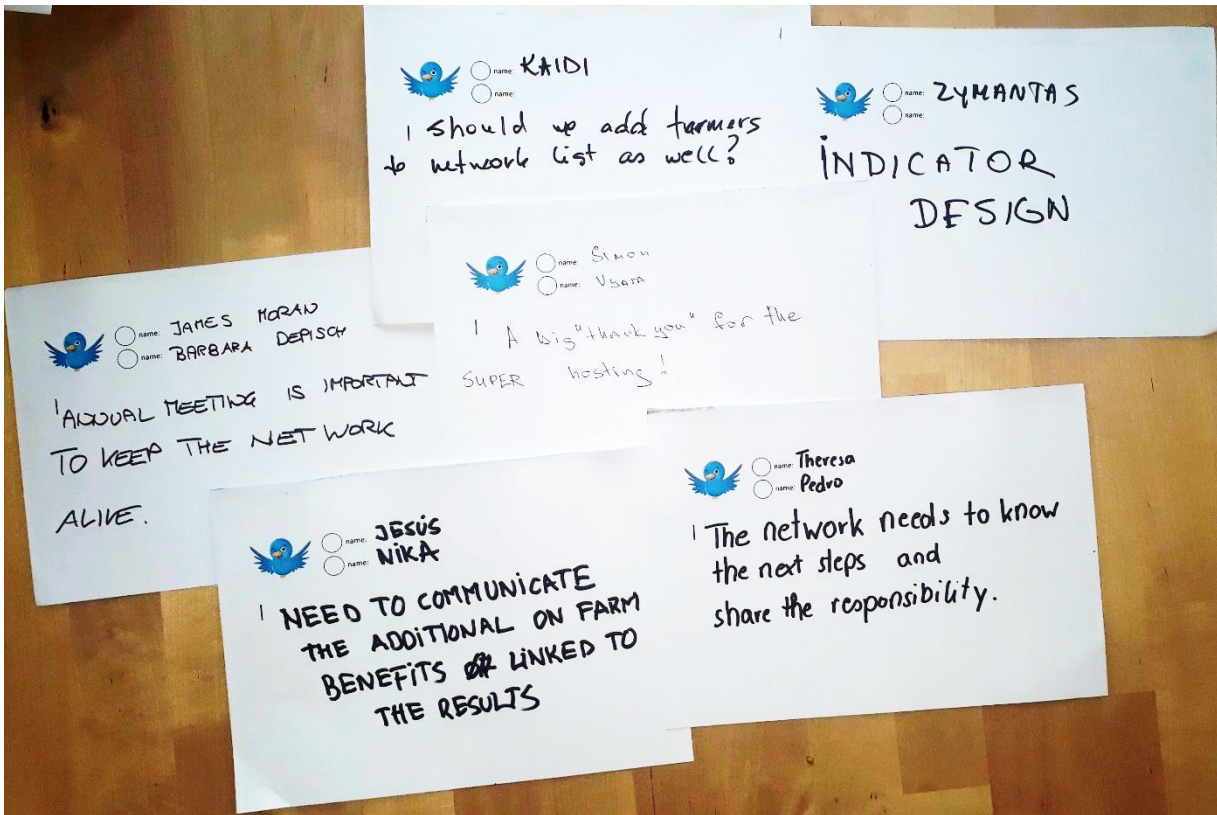 name: KAIDI
name:
Should we add farmers
to network list as well?
name: ZYMANTAS
name:
INDICATOR
DESIGN
name: Simon
name: Vyara
A big "thank you" for the
SUPER hosting!
name: JAMES MORAN
name: BARBARA DEPISCH
ANNUAL MEETING IS IMPORTANT
TO KEEP THE NETWORK
ALIVE.
name: JESÚS
name: NIKA
NEED TO COMMUNICATE
THE ADDITIONAL ON FARM
BENEFITS LINKED TO
THE RESULTS
name: Theresa
name: Pedro
The network needs to know
the next steps and
share the responsibility.